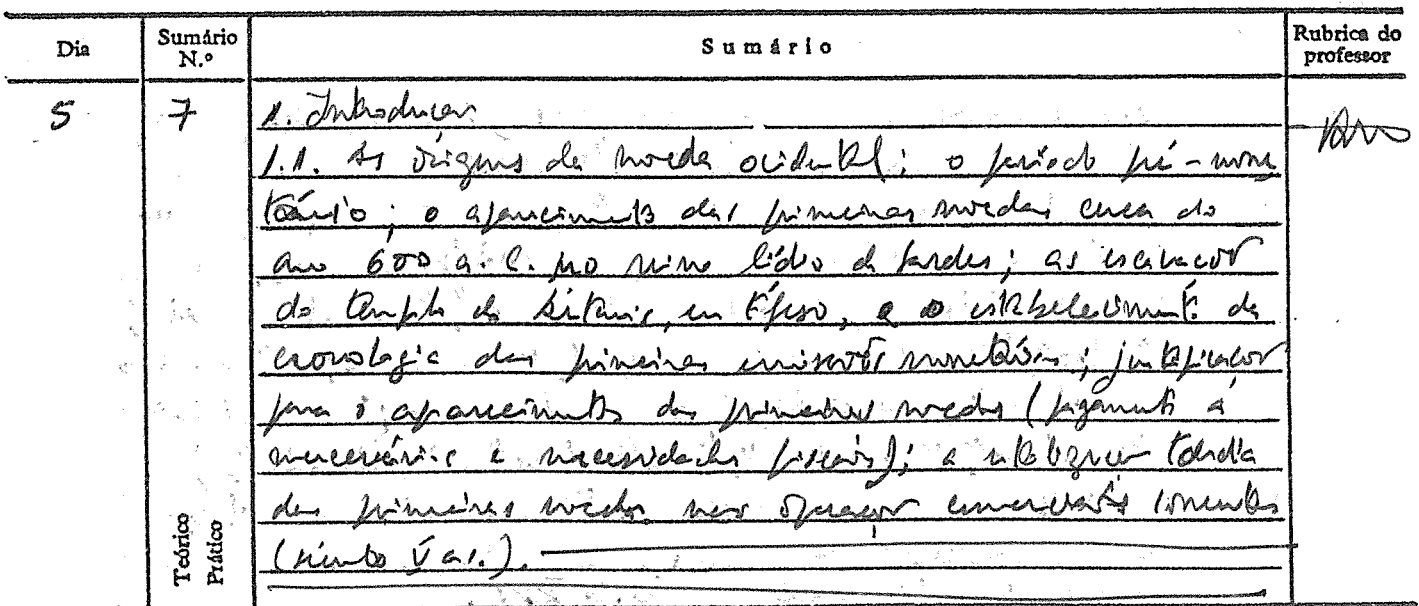 Dia Sumário N.º Sumário Rubrica do professor
5 7 1. Introdução
1.1. As origens da moeda ocidental; o período pré-mone
tário; o aparecimento das primeiras moedas cerca do
ano 600 a. C. no reino lídio de Sardes; as escavações
do templo de Ártemis, em Éfeso, e o estabelecimento da
cronologia das primeiras emissões monetárias; justificação
para o aparecimento das primeiras moedas (pagamento a
mercenários e necessidades fiscais); a utilização tardia
das primeiras moedas nas operações comerciais correntes
(século V a.C.).
Teórico
Prático